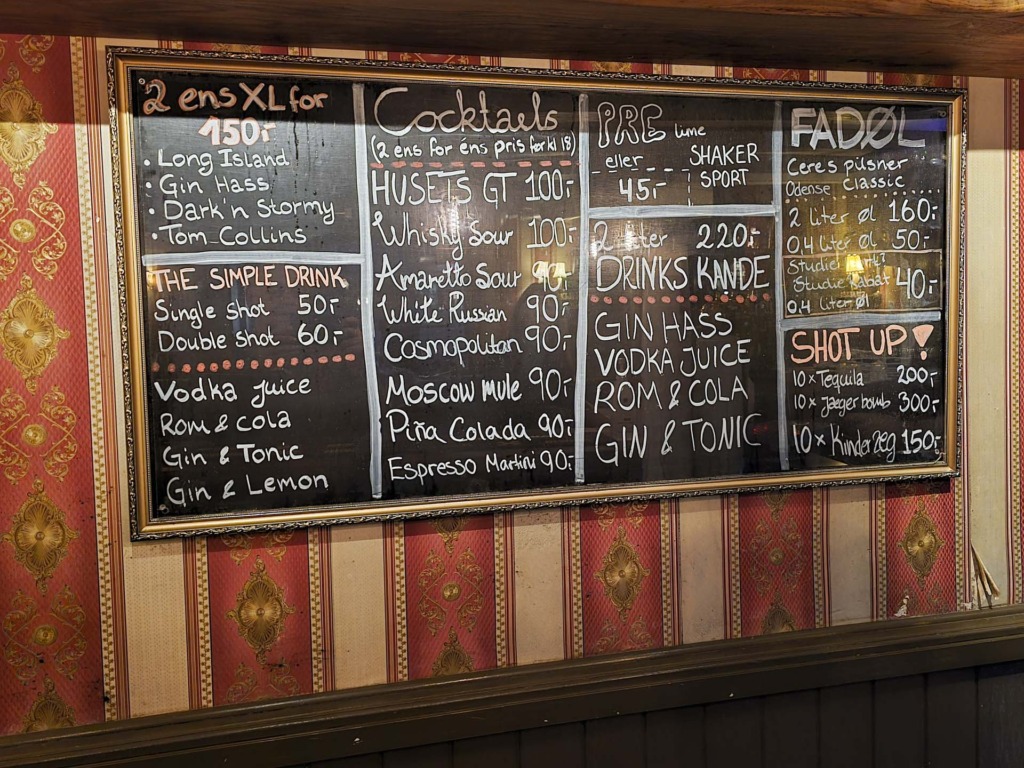 2 ens XL for
150,-
• Long Island
• Gin Hass
• Dark'n Stormy
• Tom Collins
THE SIMPLE DRINK
Single shot 50,-
Double shot 60,-
Vodka juice
Rom & cola
Gin & Tonic
Gin & Lemon
Cocktails
(2 ens for éns pris før kl 18)
HUSETS GT 100,-
Whisky Sour 100,-
Amaretto Sour 90,-
White Russian 90,-
Cosmopolitan 90,-
Moscow mule 90,-
Piña Colada 90,-
Espresso Martini 90,-
PRE lime
eller SHAKER
45,- SPORT
2 liter 220,-
DRINKS KANDE
GIN HASS
VODKA JUICE
ROM & COLA
GIN & TONIC
FADØL
Ceres pilsner
Odense Classic
2 liter øl 160,-
0,4 liter øl 50,-
Studie
Studie Rabat 40,-
0,4 liter øl
SHOT UP!
10 x Tequila 200,-
10 x Jaeger bomb 300,-
10 x Kinder æg 150,-